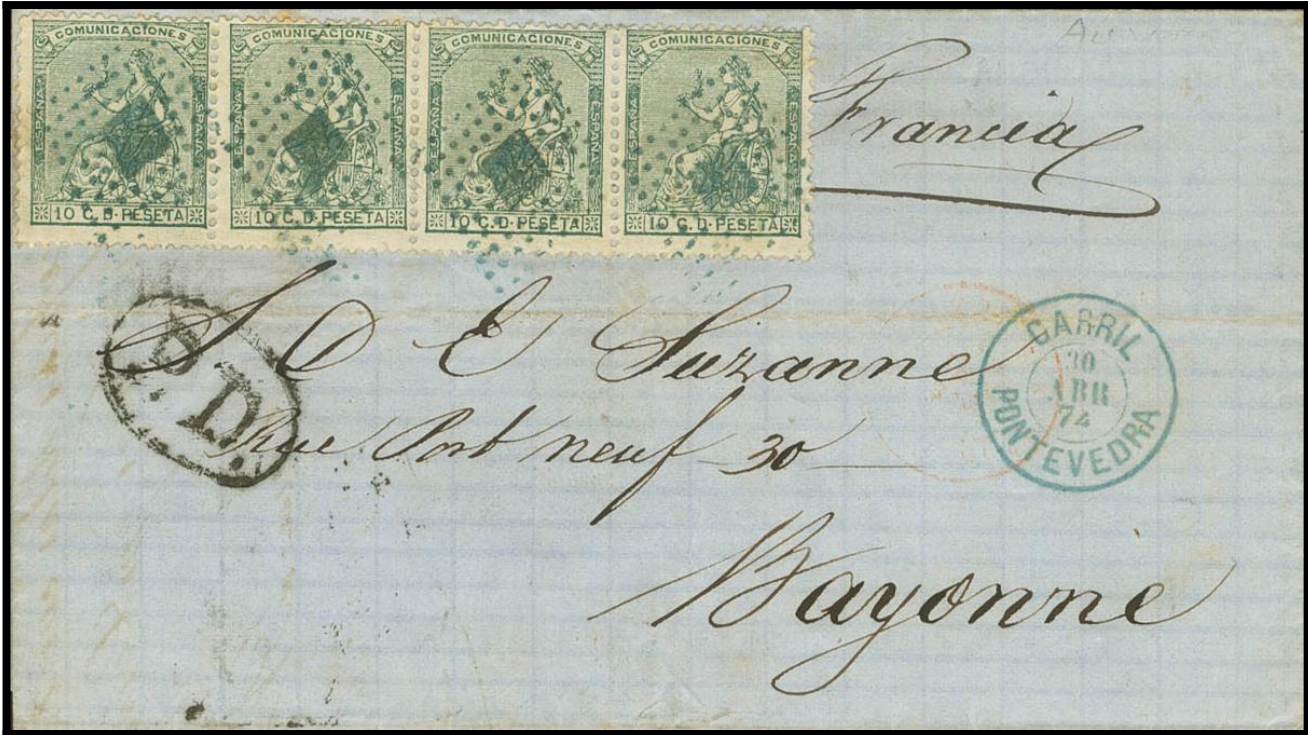 COMUNICACIONES
ESPAÑA ESPAÑA
10 C. D. PESETA
COMUNICACIONES
ESPAÑA ESPAÑA
10 C. D. PESETA
COMUNICACIONES
ESPAÑA ESPAÑA
10 C. D. PESETA
COMUNICACIONES
ESPAÑA ESPAÑA
10 C. D. PESETA
Francia
P.D.
S D E Suzanne
Rue Port neuf 30
Bayonne
CARRIL
30
ABR
74
PONTEVEDRA